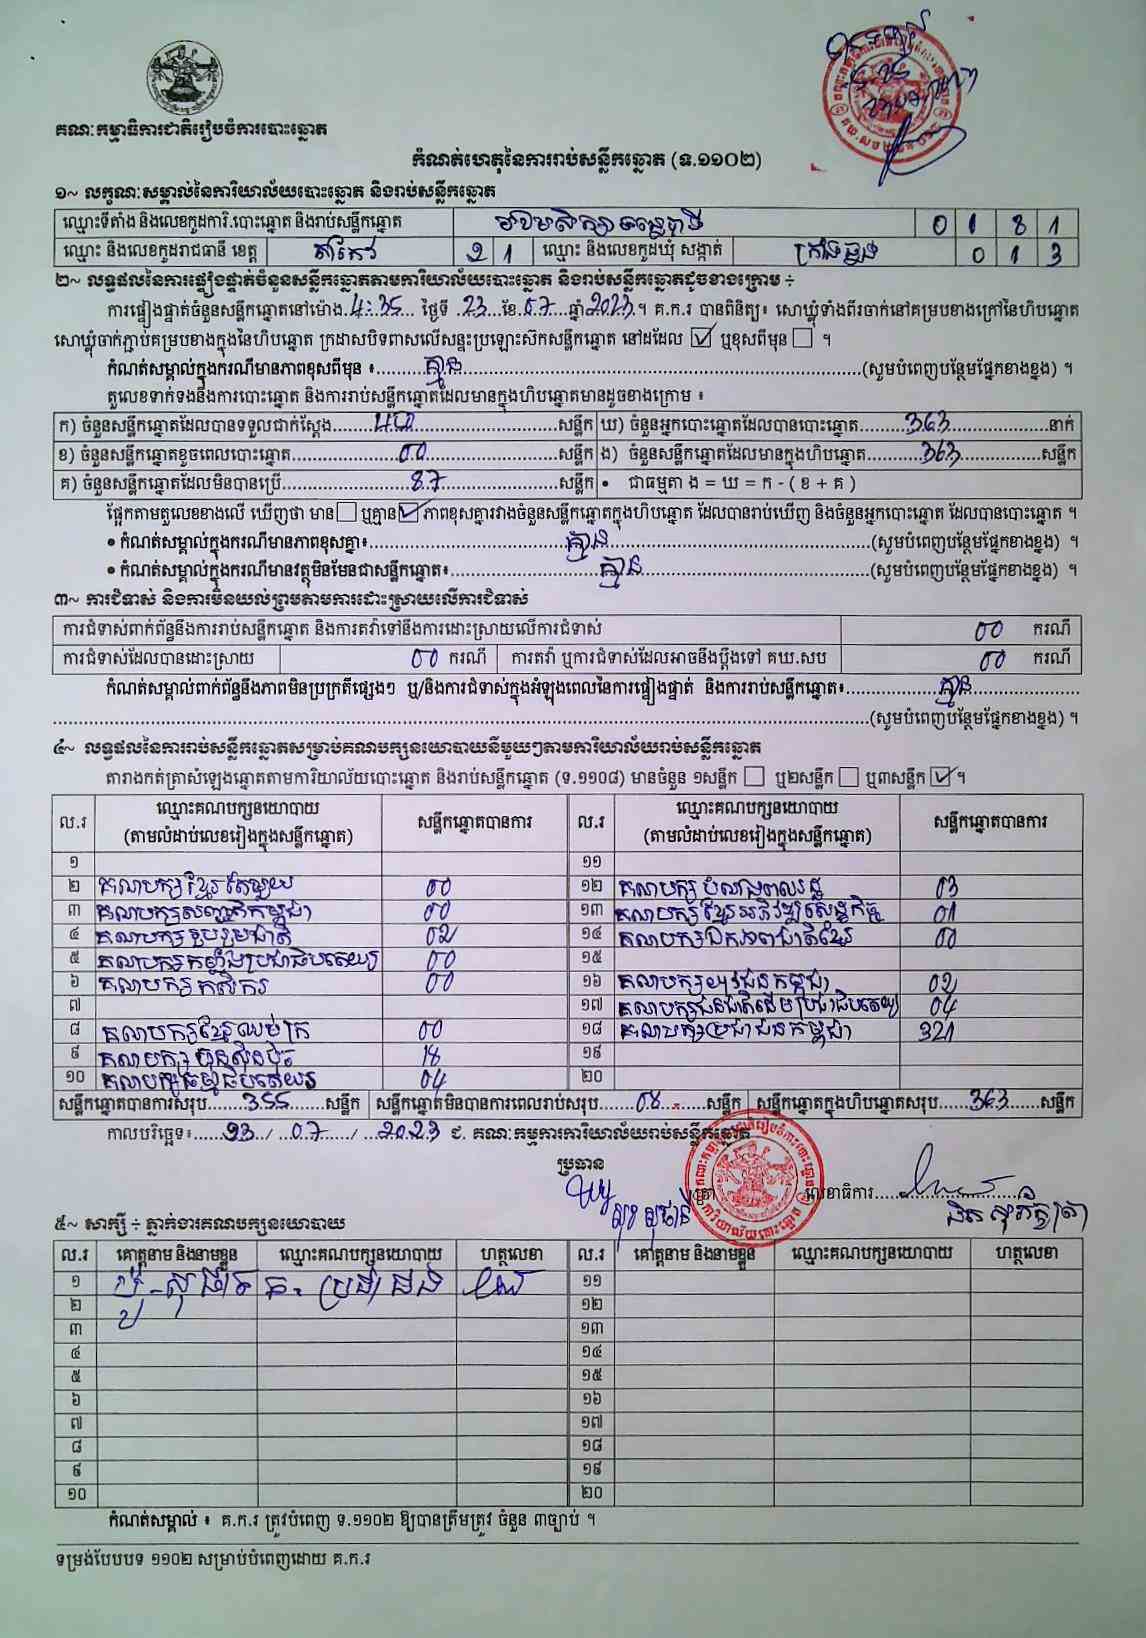 គណៈកម្មាធិការជាតិរៀបចំការបោះឆ្នោត
កំណត់ហេតុនៃការរាប់សន្លឹកឆ្នោត (ទ.១១០២)
១~ លក្ខណៈសម្គាល់នៃការិយាល័យបោះឆ្នោត និងរាប់សន្លឹកឆ្នោត
ឈ្មោះទីតាំង និងលេខកូដការិ.បោះឆ្នោត និងរាប់សន្លឹកឆ្នោត 0 1 8 1
ឈ្មោះ និងលេខកូដរាជធានី ខេត្ត តាកែវ 2 1 ឈ្មោះ និងលេខកូដឃុំ សង្កាត់ ក្រាំងធ្នង់ 0 1 3
២~ លទ្ធផលនៃការផ្ទៀងផ្ទាត់ចំនួនសន្លឹកឆ្នោតតាមការិយាល័យបោះឆ្នោត និងរាប់សន្លឹកឆ្នោតដូចខាងក្រោម ÷
ការផ្ទៀងផ្ទាត់ចំនួនសន្លឹកឆ្នោតនៅម៉ោង 4:35 ថ្ងៃទី 23 ខែ 07 ឆ្នាំ 2023 ។ គ.ក.រ បានពិនិត្យ៖ សោឃ្លុំទាំងពីរចាក់នៅគម្របខាងក្រៅនៃហិបឆ្នោត
សោឃ្លុំចាក់ភ្ជាប់គម្របខាងក្នុងនៃហិបឆ្នោត ក្រដាសបិទពាសលើសន្ទះប្រឡោះស៊កសន្លឹកឆ្នោត នៅដដែល ☑ ឬខុសពីមុន ☐ ។
កំណត់សម្គាល់ក្នុងករណីមានភាពខុសពីមុន ៖ គ្មាន (សូមបំពេញបន្ថែមផ្នែកខាងខ្នង) ។
តួលេខទាក់ទងនឹងការបោះឆ្នោត និងការរាប់សន្លឹកឆ្នោតដែលមានក្នុងហិបឆ្នោតមានដូចខាងក្រោម ៖
ក) ចំនួនសន្លឹកឆ្នោតដែលបានទទួលជាក់ស្តែង 450 សន្លឹក ឃ) ចំនួនអ្នកបោះឆ្នោតដែលបានបោះឆ្នោត 363 នាក់
ខ) ចំនួនសន្លឹកឆ្នោតខូចពេលបោះឆ្នោត 00 សន្លឹក ង) ចំនួនសន្លឹកឆ្នោតដែលមានក្នុងហិបឆ្នោត 363 សន្លឹក
គ) ចំនួនសន្លឹកឆ្នោតដែលមិនបានប្រើ 87 សន្លឹក • ជាធម្មតា ង = ឃ = ក - ( ខ + គ )
ផ្អែកតាមតួលេខខាងលើ ឃើញថា មាន ☐ ឬគ្មាន ☑ ភាពខុសគ្នារវាងចំនួនសន្លឹកឆ្នោតក្នុងហិបឆ្នោត ដែលបានរាប់ឃើញ និងចំនួនអ្នកបោះឆ្នោត ដែលបានបោះឆ្នោត ។
• កំណត់សម្គាល់ក្នុងករណីមានភាពខុសគ្នា៖ គ្មាន (សូមបំពេញបន្ថែមផ្នែកខាងខ្នង) ។
• កំណត់សម្គាល់ក្នុងករណីមានវត្ថុមិនមែនជាសន្លឹកឆ្នោត៖ គ្មាន (សូមបំពេញបន្ថែមផ្នែកខាងខ្នង) ។
៣~ ការជំទាស់ និងការមិនយល់ព្រមតាមការដោះស្រាយលើការជំទាស់
ការជំទាស់ពាក់ព័ន្ធនឹងការរាប់សន្លឹកឆ្នោត និងការតវ៉ាទៅនឹងការដោះស្រាយលើការជំទាស់ 00 ករណី
ការជំទាស់ដែលបានដោះស្រាយ 00 ករណី ការតវ៉ា ឬការជំទាស់ដែលអាចនឹងប្តឹងទៅ គឃ.សប 00 ករណី
កំណត់សម្គាល់ពាក់ព័ន្ធនឹងភាពមិនប្រក្រតីផ្សេងៗ ឬ/និងការជំទាស់ក្នុងអំឡុងពេលនៃការផ្ទៀងផ្ទាត់ និងការរាប់សន្លឹកឆ្នោត៖ គ្មាន
(សូមបំពេញបន្ថែមផ្នែកខាងខ្នង) ។
៤~ លទ្ធផលនៃការរាប់សន្លឹកឆ្នោតសម្រាប់គណបក្សនយោបាយនីមួយៗតាមការិយាល័យរាប់សន្លឹកឆ្នោត
តារាងកត់ត្រាសំឡេងឆ្នោតតាមការិយាល័យបោះឆ្នោត និងរាប់សន្លឹកឆ្នោត (ទ.១១០៨) មានចំនួន ១សន្លឹក ☐ ឬ២សន្លឹក ☐ ឬ៣សន្លឹក ☑ ។
ល.រ ឈ្មោះគណបក្សនយោបាយ (តាមលំដាប់លេខរៀងក្នុងសន្លឹកឆ្នោត) សន្លឹកឆ្នោតបានការ ល.រ ឈ្មោះគណបក្សនយោបាយ (តាមលំដាប់លេខរៀងក្នុងសន្លឹកឆ្នោត) សន្លឹកឆ្នោតបានការ
១ ១១
២ គណបក្សខ្មែរតែមួយ 00 ១២ គណបក្ស បំណងពលរដ្ឋ 03
៣ គណបក្សសញ្ជាតិកម្ពុជា 00 ១៣ គណបក្សខ្មែរអភិវឌ្ឍសេដ្ឋកិច្ច 01
៤ គណបក្សរួបរួមជាតិ 02 ១៤ គណបក្សឯកភាពជាតិខ្មែរ 00
៥ គណបក្សកម្លាំងប្រជាធិបតេយ្យ 00 ១៥
៦ គណបក្សកសិករ 00 ១៦ គណបក្សយុវជនកម្ពុជា 02
៧ ១៧ គណបក្សជនជាតិដើមប្រជាធិបតេយ្យ 04
៨ គណបក្សខ្មែរឈប់ក្រ 00 ១៨ គណបក្សប្រជាជនកម្ពុជា 321
៩ គណបក្សហ្វ៊ុនស៊ិនប៉ិច 18 ១៩
១០ គណបក្សធម្មាធិបតេយ្យ 04 ២០
សន្លឹកឆ្នោតបានការសរុប 355 សន្លឹក សន្លឹកឆ្នោតមិនបានការពេលរាប់សរុប 08 សន្លឹក សន្លឹកឆ្នោតក្នុងហិបឆ្នោតសរុប 363 សន្លឹក
កាលបរិច្ឆេទ៖ 23 / 07 / 2023 ជ. គណៈកម្មការការិយាល័យរាប់សន្លឹកឆ្នោត
ប្រធាន
លេខាធិការ
៥~ សាក្សី ÷ ភ្នាក់ងារគណបក្សនយោបាយ
ល.រ គោត្តនាម និងនាមខ្លួន ឈ្មោះគណបក្សនយោបាយ ហត្ថលេខា ល.រ គោត្តនាម និងនាមខ្លួន ឈ្មោះគណបក្សនយោបាយ ហត្ថលេខា
១ គ. ប្រជាជន ១១
២ ១២
៣ ១៣
៤ ១៤
៥ ១៥
៦ ១៦
៧ ១៧
៨ ១៨
៩ ១៩
១០ ២០
កំណត់សម្គាល់ ៖ គ.ក.រ ត្រូវបំពេញ ទ.១១០២ ឱ្យបានត្រឹមត្រូវ ចំនួន ៣ច្បាប់ ។
ទម្រង់បែបបទ ១១០២ សម្រាប់បំពេញដោយ គ.ក.រ